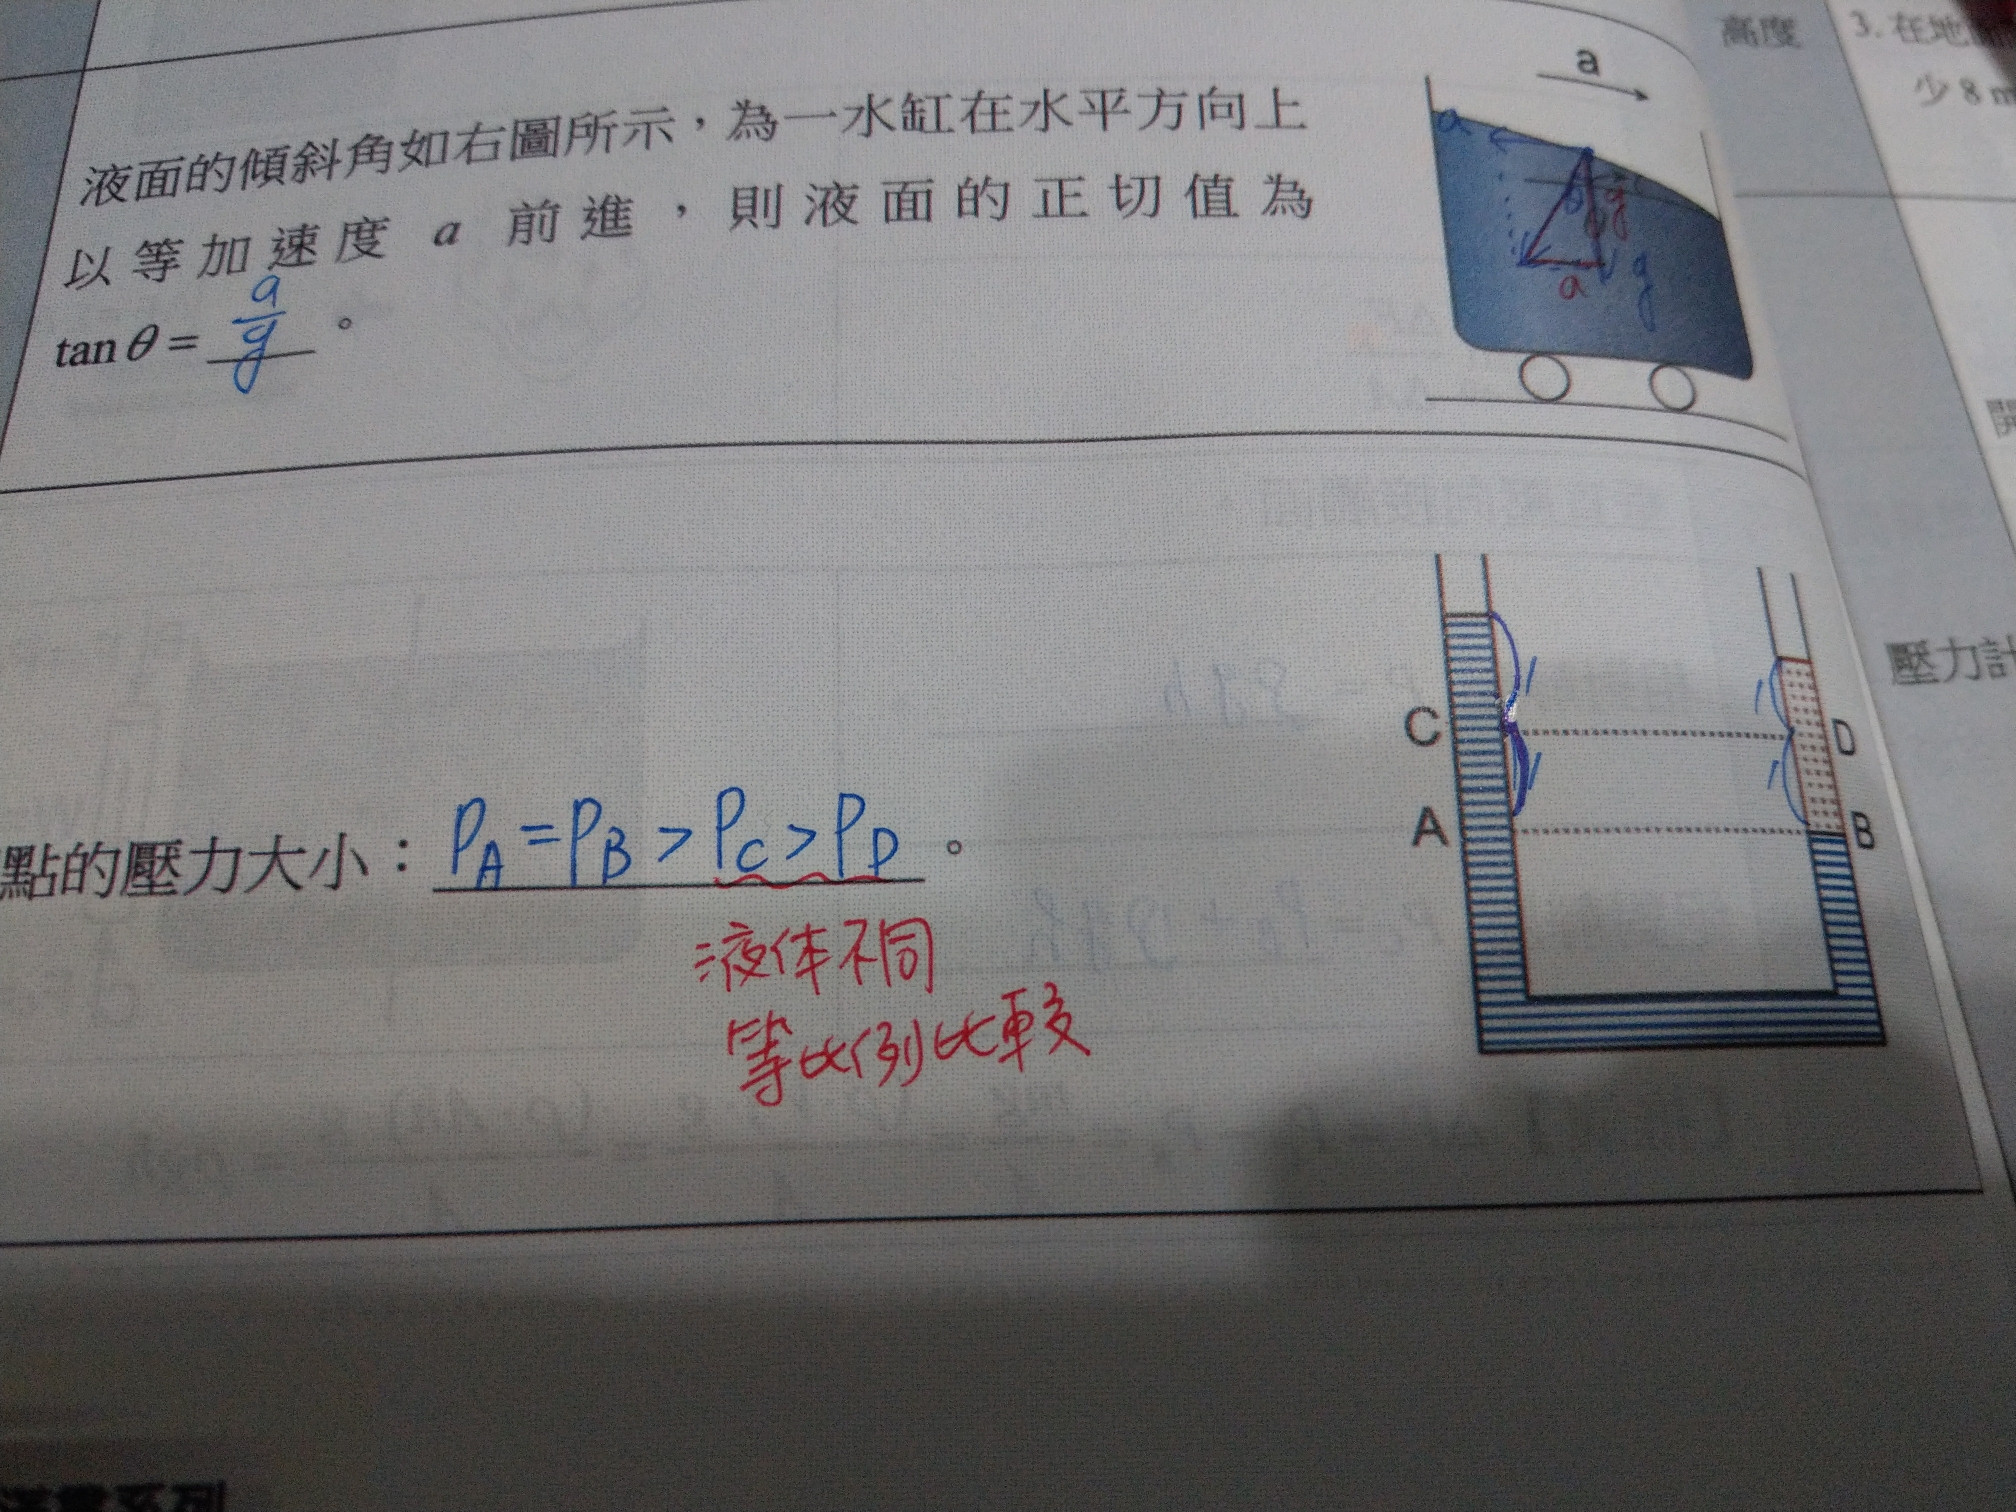 高度
3. 在地
少 8 m
a
液面的傾斜角如右圖所示，為一水缸在水平方向上
以等加速度 a 前進，則液面的正切值為
tan θ = a/g 。
a
g
a
g
壓力計
C
D
A
B
點的壓力大小：PA = PB > PC > PD 。
液体不同
等比例比較